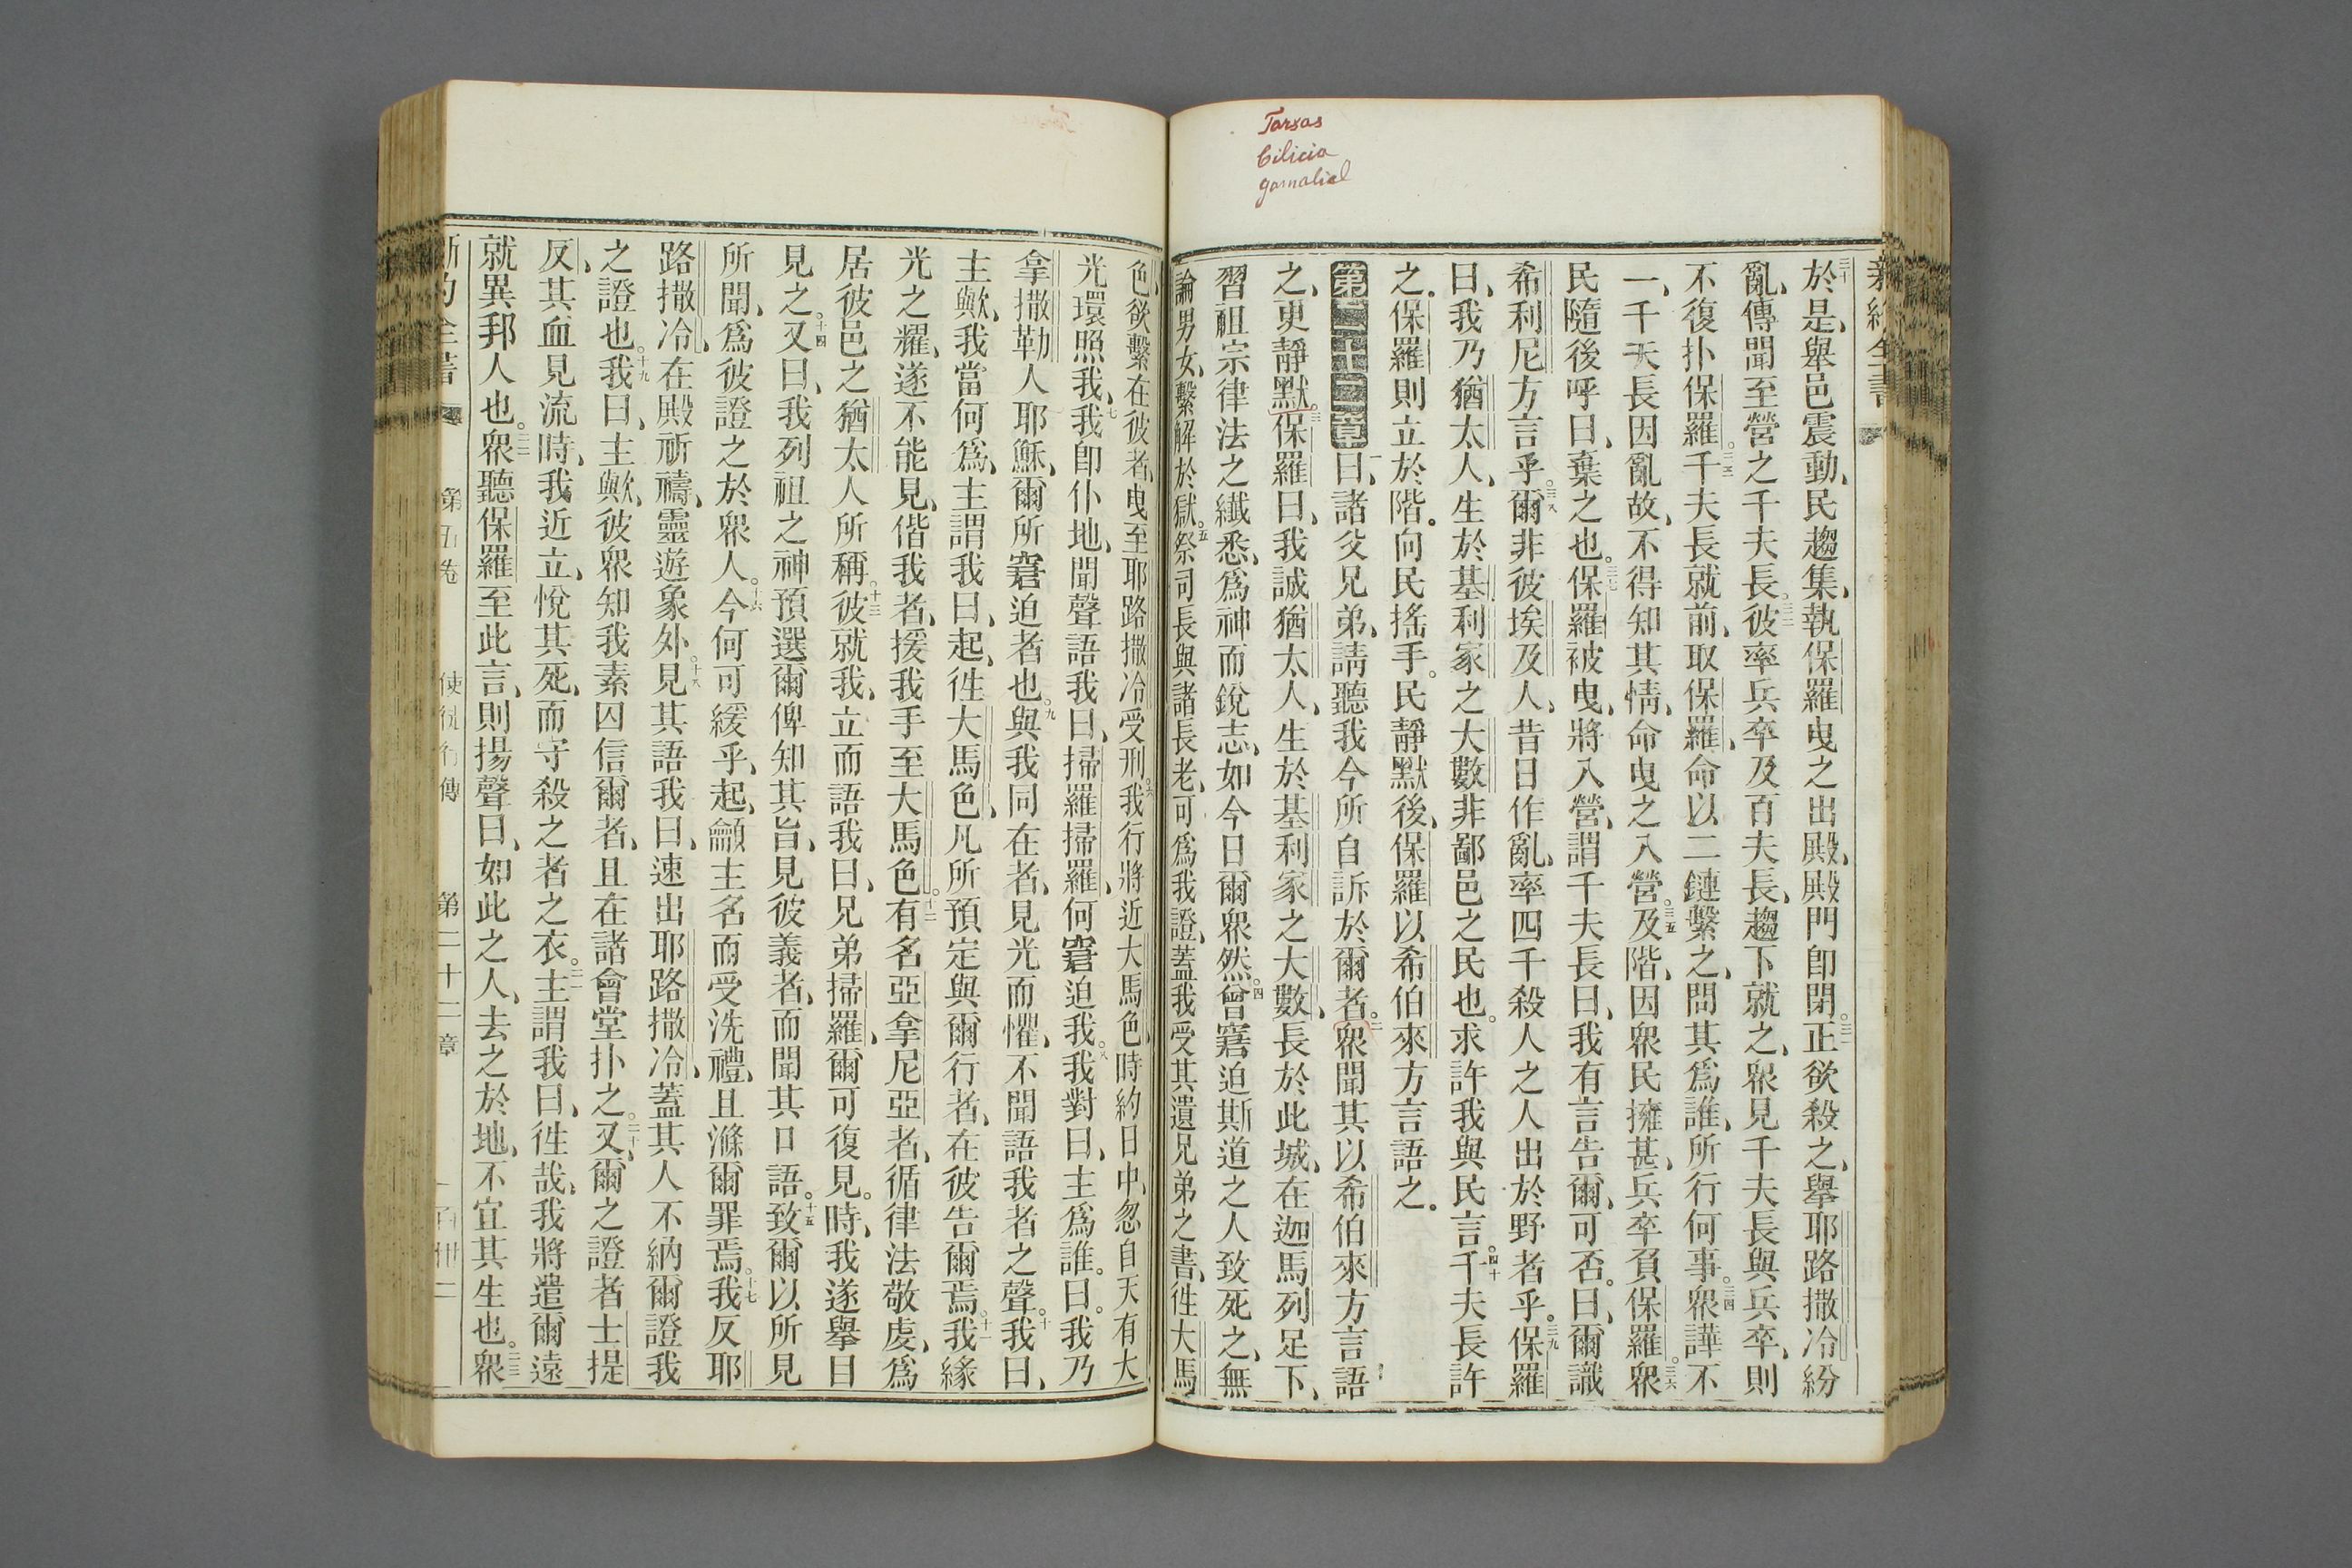 Tarsas
Cilicia
gamaliel
三十於是、舉邑震動、民趨集、執保羅曳之出殿、殿門卽閉。三一正欲殺之、舉耶路撒冷紛
亂、傳聞至營之千夫長。三二彼率兵卒及百夫長、趨下就之、眾見千夫長與兵卒、則
不復扑保羅。三三千夫長就前、取保羅、命以二鏈繫之、問其爲誰、所行何事。三四眾譁不
一、千夫長因亂故、不得知其情、命曳之入營。三五及階、因眾民擁甚、兵卒負保羅。三六眾
民隨後呼曰、棄之也。三七保羅被曳、將入營、謂千夫長曰、我有言告爾、可否。曰、爾識
希利尼方言乎。三八爾非彼埃及人、昔日作亂、率四千殺人之人出於野者乎。三九保羅
曰、我乃猶太人、生於基利家之大數非鄙邑之民也。求許我與民言。四十千夫長許
之。保羅則立於階。向民搖手。民靜默後、保羅以希伯來方言語之。
第二十二章一曰、諸父兄弟、請聽我今所自訴於爾者。二眾聞其以希伯來方言語
之、更靜默。三保羅曰、我誠猶太人、生於基利家之大數、長於此城、在迦馬列足下、
習祖宗律法之纎悉、爲神而銳志、如今日爾眾然。四曾窘迫斯道之人致死之、無
論男女、繫解於獄。五祭司長與諸長老、可爲我證、蓋我受其遺兄弟之書、徃大馬
色、欲繫在彼者、曳至耶路撒冷受刑。六我行將近大馬色、時約日中、忽自天有大
光環照我、七我卽仆地、聞聲語我曰、掃羅掃羅、何窘迫我。八我對曰、主爲誰。曰。我乃
拿撒勒人耶穌、爾所窘迫者也。九與我同在者、見光而懼、不聞語我者之聲。十我曰、
主歟、我當何爲、主謂我曰、起、徃大馬色、凡所預定與爾行者、在彼告爾焉。十一我緣
光之耀、遂不能見、偕我者、援我手至大馬色。十二有名亞拿尼亞者、循律法敬虔、爲
居彼邑之猶太人所稱。十三彼就我、立而語我曰、兄弟掃羅、爾可復見。時、我遂舉目
見之。十四又曰、我列祖之神預選爾俾知其旨、見彼義者、而聞其口語。十五致爾以所見
所聞、爲彼證之於眾人。十六今何可緩乎、起、籲主名而受洗禮、且滌爾罪焉。十七我反耶
路撒冷、在殿祈禱、靈遊象外。十八見其語我曰、速出耶路撒冷、蓋其人不納爾證我
之證也。十九我曰、主歟、彼眾知我素囚信爾者、且在諸會堂扑之。二十又爾之證者士提
反、其血見流時、我近立、悅其死、而守殺之者之衣。二一主謂我曰、徃哉、我將遣爾遠
就異邦人也。二二眾聽保羅至此言、則揚聲曰、如此之人、去之於地、不宜其生也。二三眾
新約全書 第五卷 使徒行傳 第二十二章